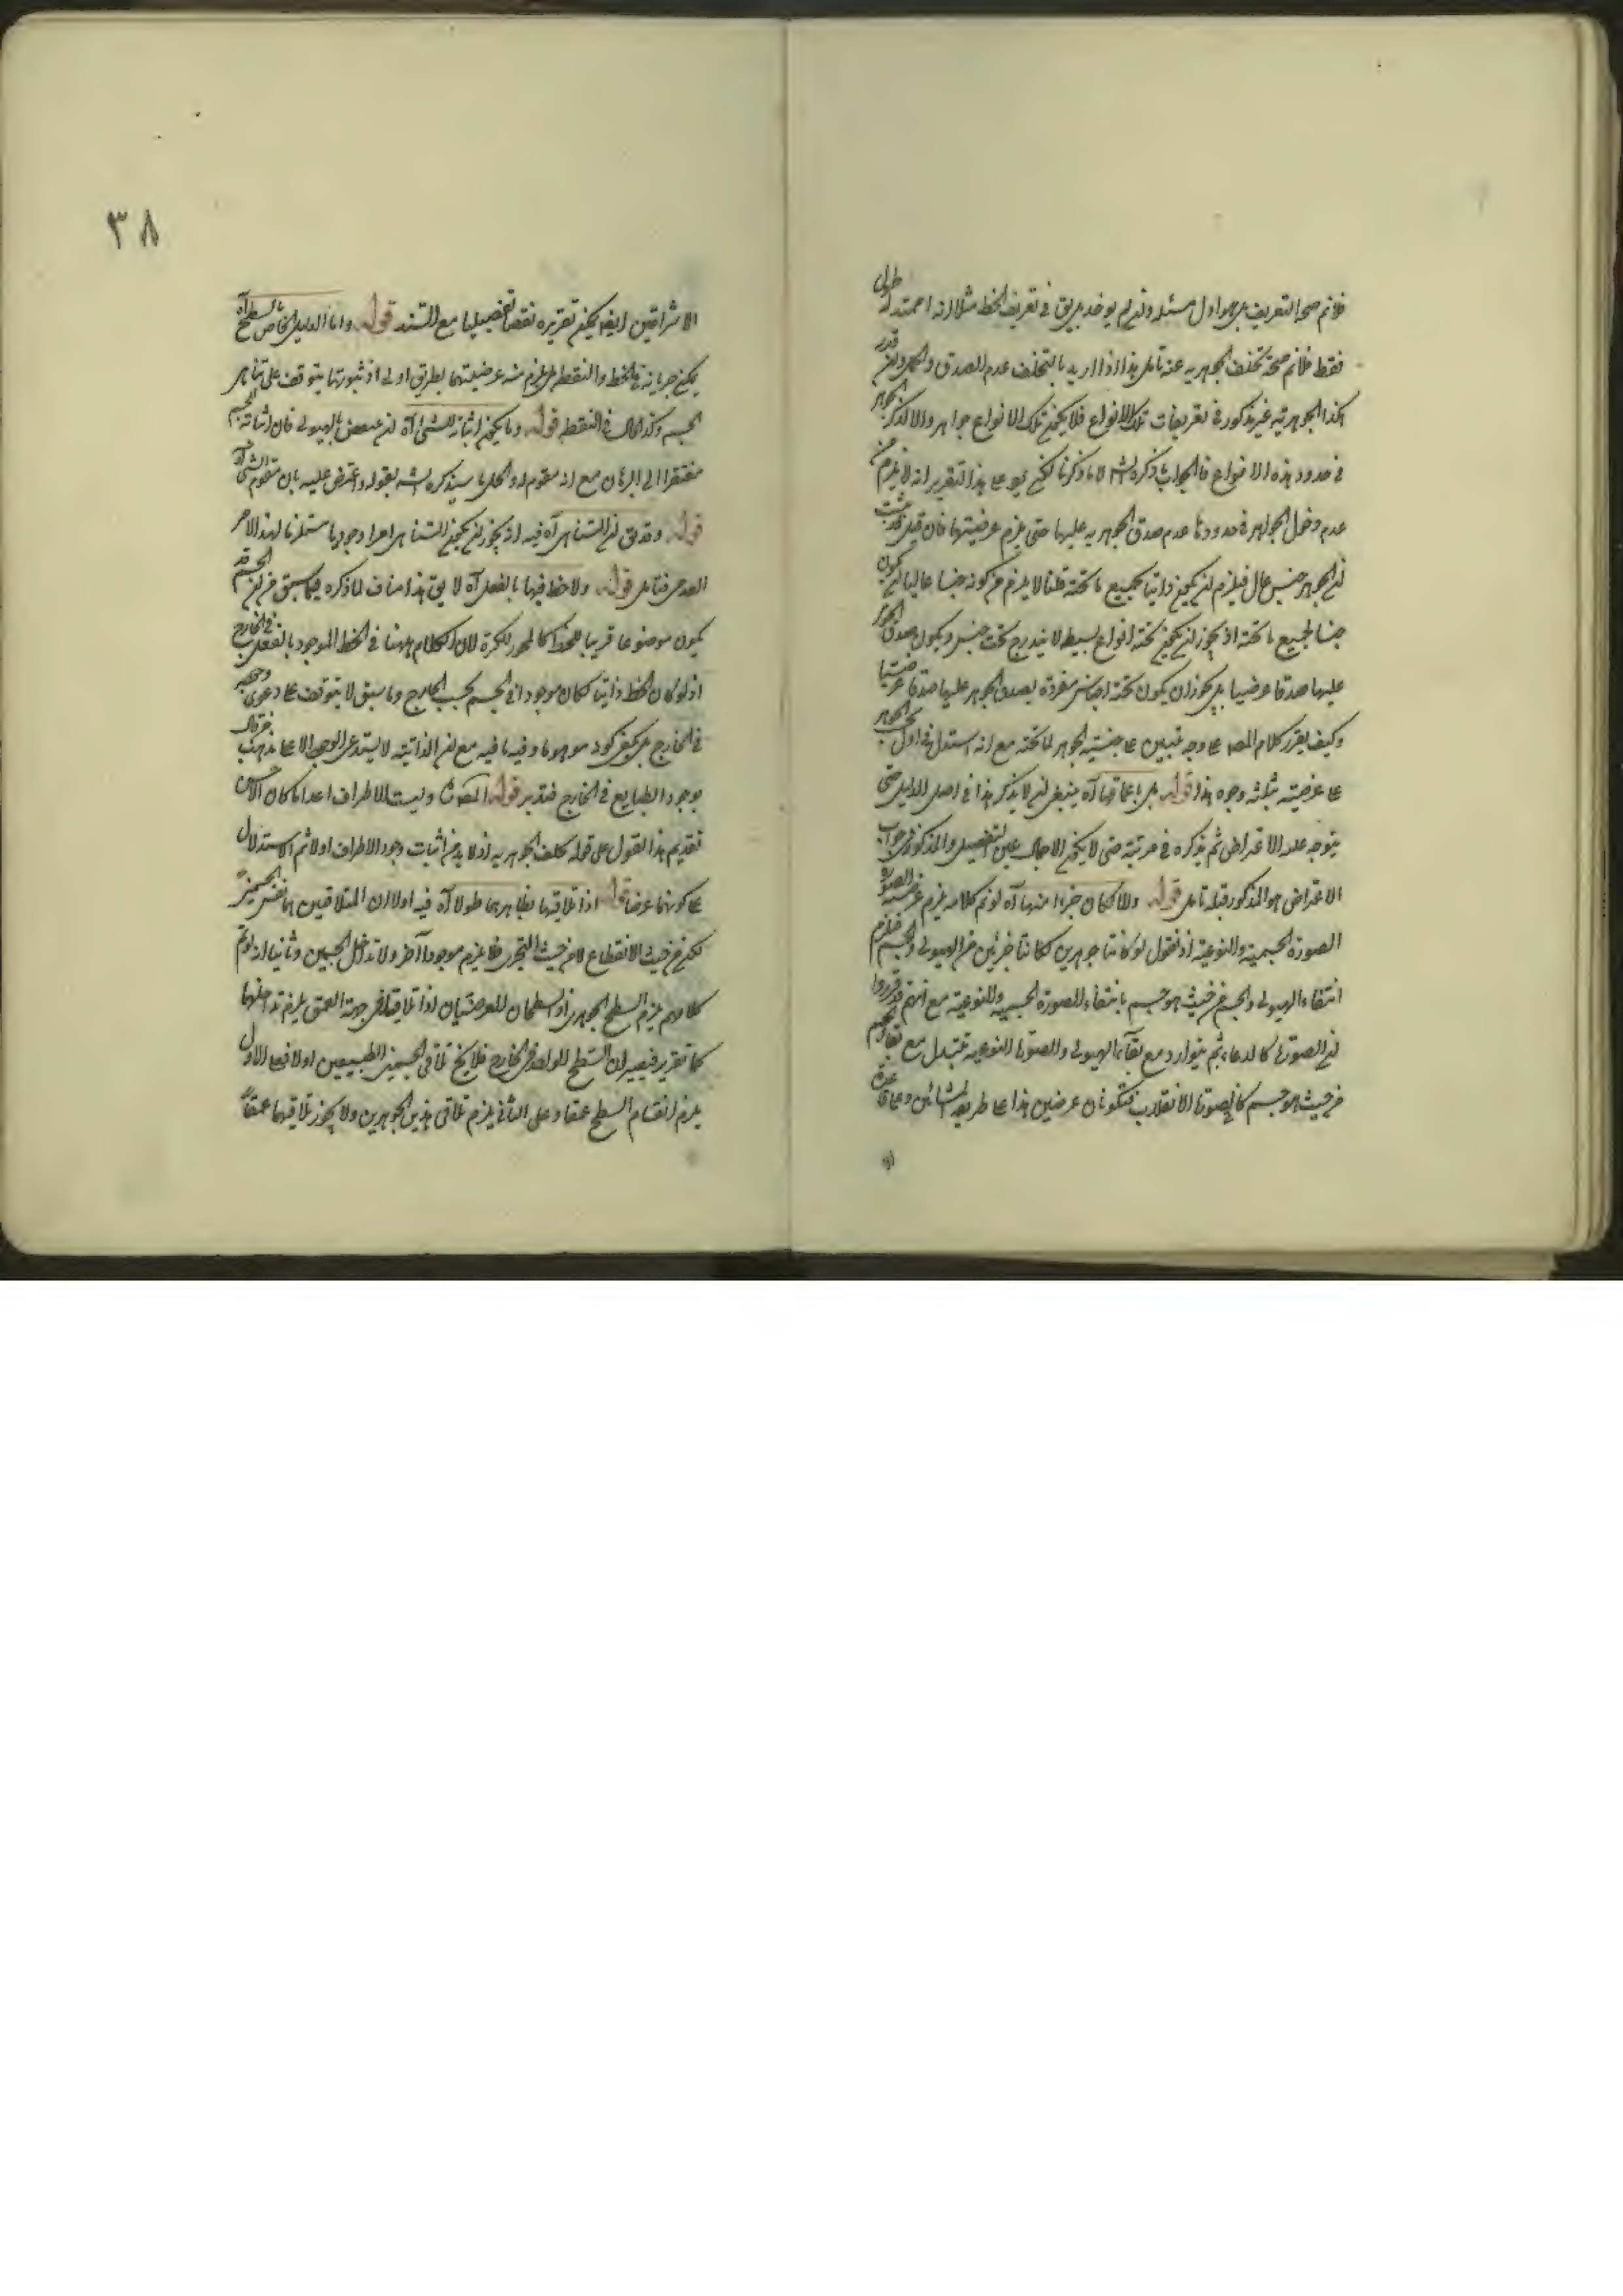 فلانم صحة التعريف بل هو اول مسئلة ولئن لم يوخذ بل يق في تعريف الخط مثلا انه امتداد طولى
فقط فلانم صحة تخلف الجوهرية عنه تامل هذا اذا اريد بالتخلف عدم الصدق والحمل ولئن قدر
هكذا الجوهرية غير مذكورة في تعريفات تلك الانواع فلا يكون تلك الانواع جواهر والا لذكر الجوهر
في حدود هذه الانواع فالجواب ما ذكره الش لا ما ذكرنا لكن يرد على هذا التقرير انه لا يلزم من
عدم دخول الجواهر في حدودها عدم صدق الجوهرية عليها حتى يلزم عرضيتها فان قيل قد ثبت
ان الجوهر جنس عال فيلزم ان يكون ذاتيا لجميع ما تحته قلنا لا يلزم من كونه جنسا عاليا ان يكون
جنسا لجميع ما تحته اذ يجوز ان يكون تحته انواع بسيطة لا يندرج تحت جنس ويكون صدق الجوهر
عليها صدقا عرضيا بل يجوز ان يكون تحته اجناس مفردة يصدق الجوهر عليها صدقا عرضيا
وكيف يقرر كلام المصـ على وجه يبتنى على جنسية الجوهر لما تحته مع انه استدل في اول بحث الجوهر
على عرضيته بثلثة وجوه هذا قوله بل باعماقها آه ينبغى ان لا يذكر هذا في اصل الدليل حتى
يتوجه عليه الاعتراض ثم يذكره في مرتبة حتى لا يكون الاجمال عين التفصيل والمذكور في جواب
الاعتراض هو المذكور قبله تامل قوله والا لكان جزءا منها آه لو تم كلامه يلزم عرضية الصورة
الصورة الجسمية والنوعية اذ نقول لو كانتا جوهرين لكانتا جزئين من الهيولى والجسم فيلزم
انتفاء الهيولى والجسم من حيث هو جسم بانتفاء الصورة الجسمية والنوعية مع انهم قد قرروا
ان الصورة كالدعائم يتوارد مع بقاء الهيولى والصورة النوعية تتبدل مع بقاء الجسم
من حيث هو جسم كما في صورة الانقلاب فتكونان عرضين هذا على طريقة المشائين وعلى قاعدة
الاشراقيين ايضا يمكن تقريره نقضا تفصيليا مع السند قوله واما الدليل الخاص بالسطح آه
يمكن جريانه في الخط والنقطة بل يلزم منه عرضيتهما بطريق اولى اذ ثبوتهما يتوقف على تناهى
الجسم وكذا الحال في النقطة قوله وما يكون اثبات الشئ آه لئن نقض بالهيولى فان اثباته للجسم
مفتقر الى البرهان مع انه مقوم له والحل ما سيذكره الش بقوله واعترض عليه بان مقوم الشئ آه
قوله وقد يق ان التناهى آه فيه انه يجوز ان يكون التناهى امرا وجوديا مستلزما لهذا الامر
العدمى فتامل قوله ولا خط فيها بالفعل آه لا يق هذا مناف لما ذكره فيما سبق من ان الجسم قد
يكون موضوعا قريبا للخط كالمحور للكرة لان الكلام ههنا في الخط الموجود بالفعل في الخارج
اذ لو كان الخط ذاتيا لكان موجودا في الجسم بحسب الخارج وما سبق لا يتوقف على دعوى وجوده
في الخارج بل يكفى كونه موهوما وفيه ما فيه مع ان الذاتية لا يستدعى الوجود الا على مذهب من قال
بوجود الطبايع في الخارج فتدبر قوله المصـ وليست الاطراف اعداما كان الاولى
تقديم هذا القول على قوله تخلف الجوهرية اذ لا بد من اثبات وجود الاطراف اولا ثم الاستدلال
على كونها عرضا قوله اذا تلاقيهما بظاهرهما طولا آه فيه اولا ان المتلاقيين هما نفس الجسمين
لكن من حيث الانقطاع لا من حيث التجزى فلا يلزم موجود آخر ولا تداخل الجسمين وثانيا انه لو تم
كلامهم يلزم السطح الجوهرى اذ السطحان العرضيان اذا تلاقيا في جهة العمق يلزم تداخلهما
كما تقرير فيصيران السطح الواحد في الخارج فلا يخ تلاقى الجسمين الطبيعيين اولا فعلى الاول
يلزم انقسام السطح عمقا وعلى الثانى يلزم تلاقى هذين الجوهرين ولا يجوز تلاقيهما عمقا
٣٨